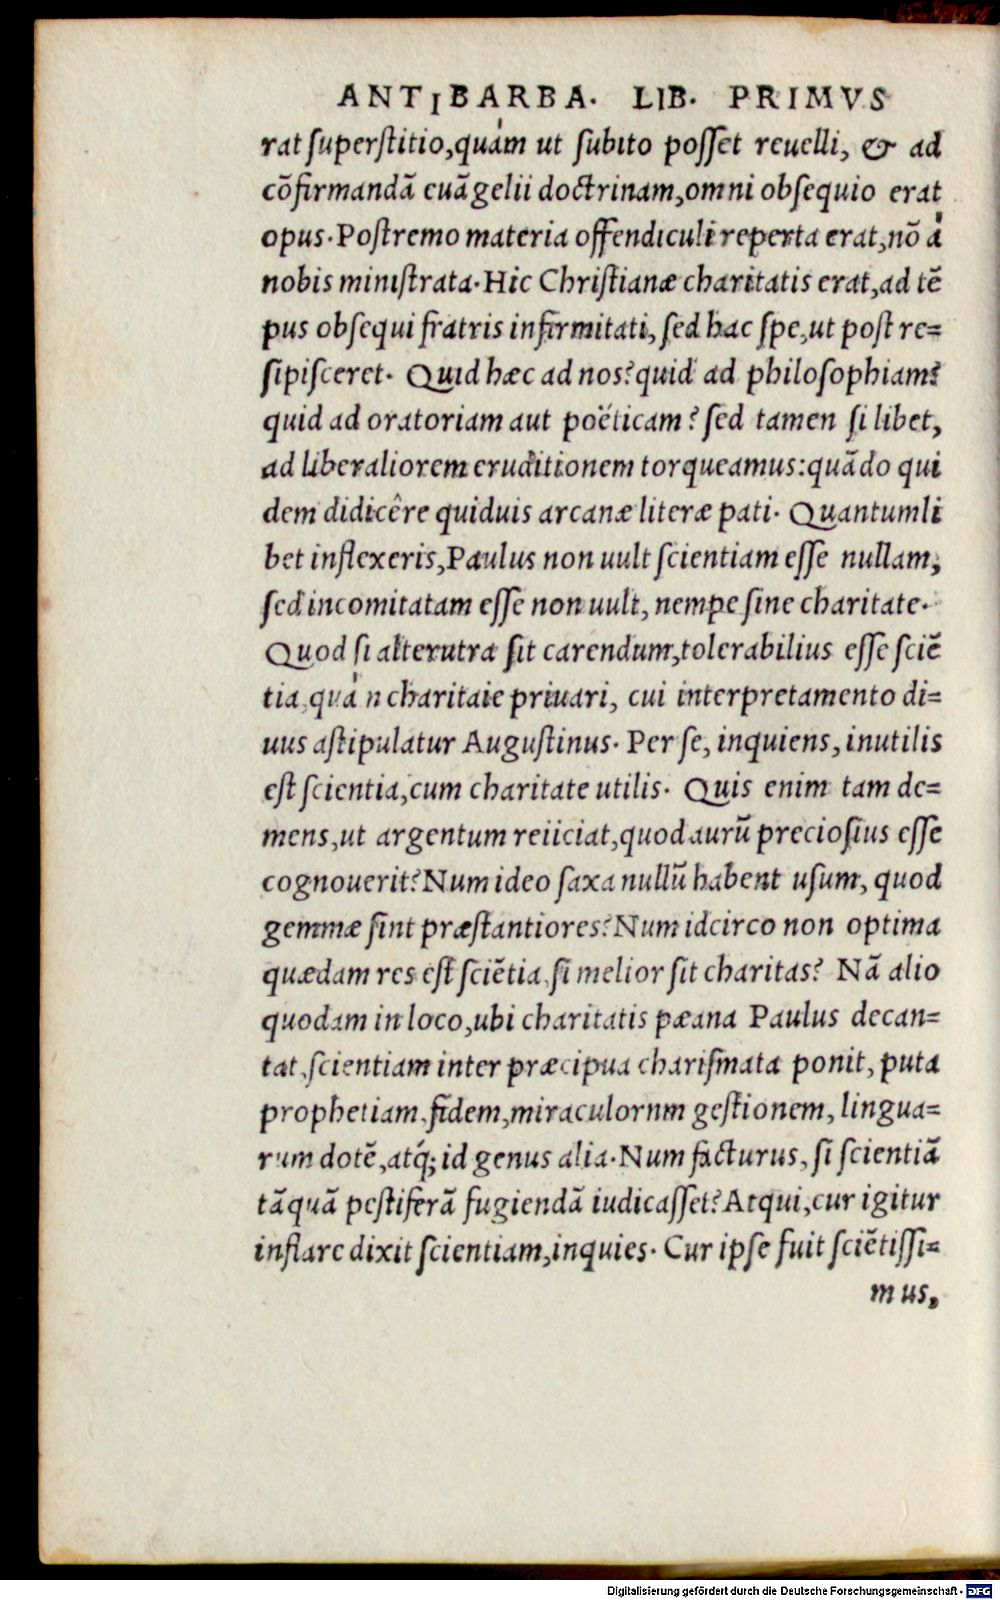 ANTIBARBA. LIB. PRIMVS
rat superstitio, quàm ut subito posset reuelli, & ad
cõfirmandã euãgelii doctrinam, omni obsequio erat
opus. Postremo materia offendiculi reperta erat, nõ à
nobis ministrata. Hic Christianæ charitatis erat, ad tẽ
pus obsequi fratris infirmitati, sed hac spe, ut post re=
sipisceret. Quid hæc ad nos? quid ad philosophiam?
quid ad oratoriam aut poëticam? sed tamen si libet,
ad liberaliorem eruditionem torqueamus: quãdo qui
dem didicêre quiduis arcanæ literæ pati. Quantumli
bet inflexeris, Paulus non uult scientiam esse nullam,
sed incomitatam esse non uult, nempe sine charitate.
Quod si alterutra sit carendum, tolerabilius esse sciẽ
tia, quàn charitaie priuari, cui interpretamento di=
uus astipulatur Augustinus. Per se, inquiens, inutilis
est scientia, cum charitate utilis. Quis enim tam de=
mens, ut argentum reiiciat, quod aurũ preciosius esse
cognouerit? Num ideo saxa nullũ habent usum, quod
gemmæ sint præstantiores? Num idcirco non optima
quædam res est sciẽtia, si melior sit charitas? Nã alio
quodam in loco, ubi charitatis pæana Paulus decan=
tat, scientiam inter præcipua charismata ponit, puta
prophetiam, fidem, miraculornm gestionem, lingua=
rum dotẽ, atq́; id genus alia. Num facturus, si scientiã
tãquã pestiferã fugiendã iudicasset? Atqui, cur igitur
inflare dixit scientiam, inquies. Cur ipse fuit sciẽtissi=
mus,
Digitalisierung gefördert durch die Deutsche Forschungsgemeinschaft - DFG